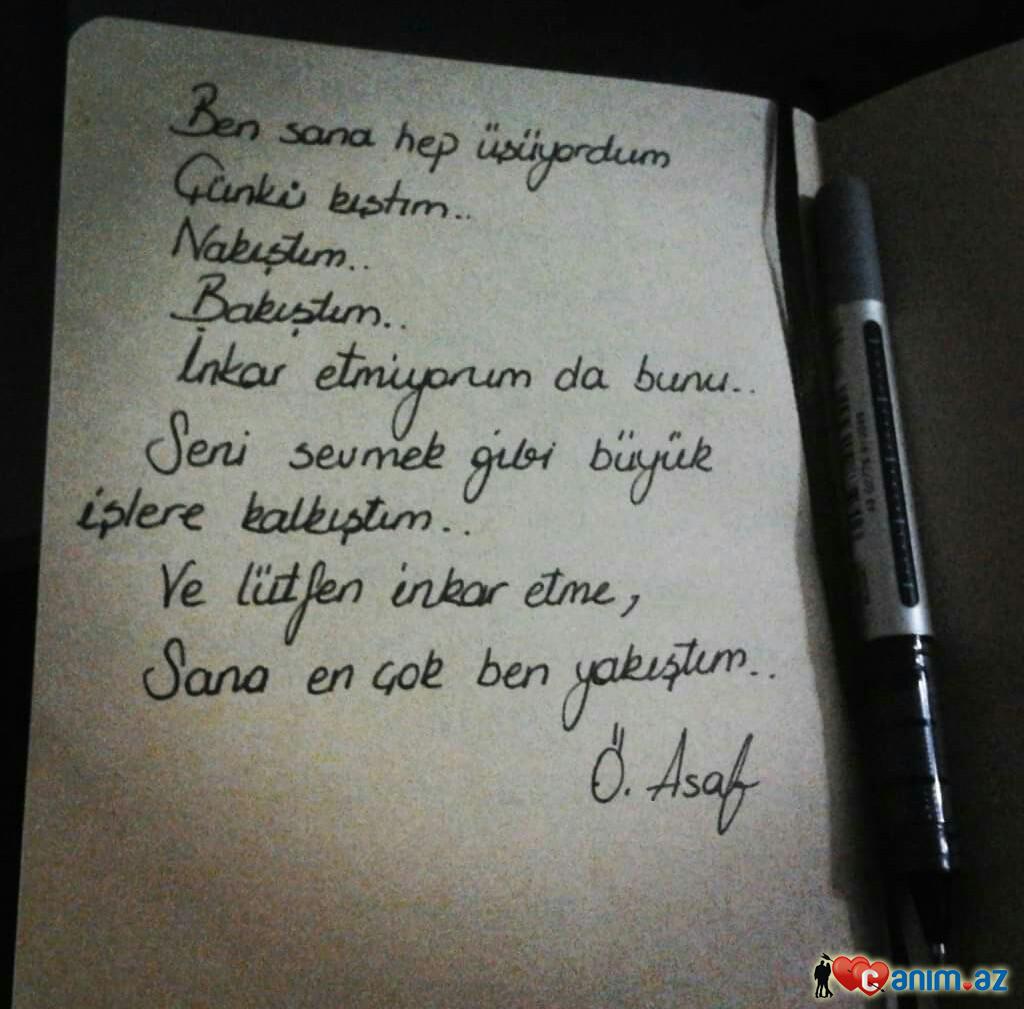 Ben sana hep üşüyordum
Çünkü kıştım..
Nakıştım..
Bakıştım..
İnkar etmiyorum da bunu..
Seni sevmek gibi büyük
işlere kalkıştım..
Ve lütfen inkar etme,
Sana en çok ben yakıştım..
Ö. Asaf
Canim.az